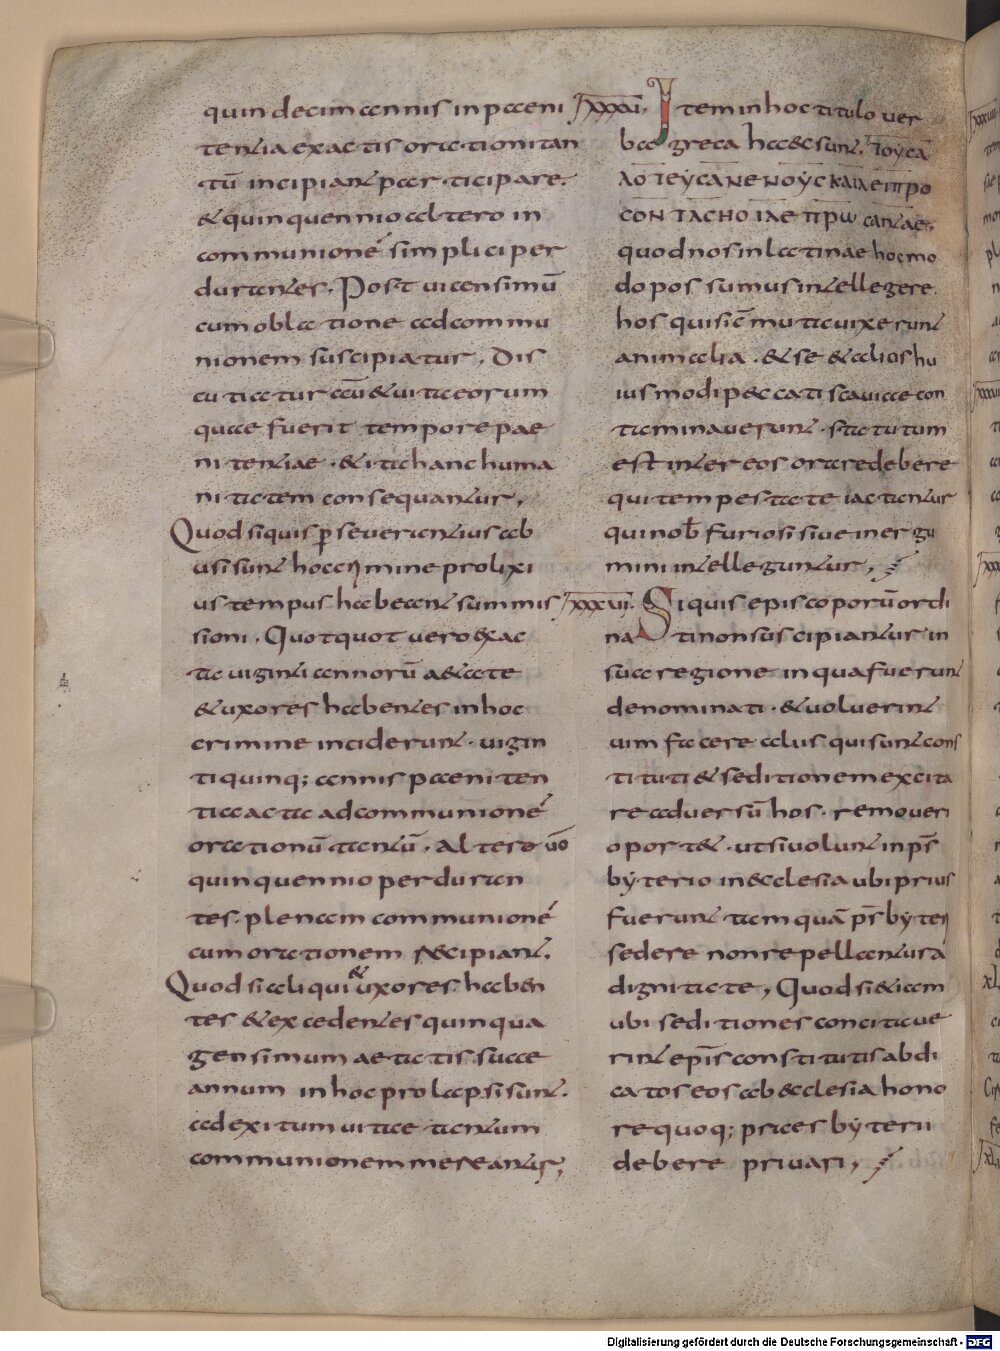 quindecim annis in paeni
tentia exactis orationi tan
tū incipiant participare.
& quinquennio altero in
communione simplici per
durantes. Post uicensimū
cum oblatione ad commu
nionem suscipiatur. Dis
cutiatur aūt & uita eorum
quae fuerit tempore pae
nitentiae. & ita hanc huma
nitatem consequantur.
Quod siquis pseuerantius ab
usi sunt hoc crimine prolixi
us tempus habeant summis
sioni. Quotquot uero exac
ta uiginti annorū a&ate
& uxores habentes in hoc
crimine inciderunt. uigin
ti quinq; annis paeniten
tia acta ad communioné
orationū tantū. Altero ūo
quinquennio perduran
tes. plenam communioné
cum oratione recipiant.
Quod si aliqui & uxores haben
tes & excedentes quinqua
gensimum aetatis suae
annum in hoc prolapsi sunt.
ad exitum uitae tantum
communionem mereantur;
xxxvi. Item in hoc titulo uer
ba greca haec sunt.
quod nos in latinae hoc mo
do possumus intellegere.
hos quisic mutauixerunt
animalia. & se & alios hu
iusmodi peccati scauiae con
taminauerunt. statutum
est inter eos orare debere
qui tempestate iactantur
qui nob furiosi siue inergu
mini intelleguntur,
xxxvii. Siquis episcoporū ordi
nati non suscipiantur in
sua regione in qua fuerunt
denominati. & uoluerint
uim facere aliis qui sunt cons
tituti & seditionem excita
re aduersū hos. remoueri
oport&. ut si uolunt in ps
byterio in ecclesia ubi prius
fuerunt tamquā psbyteri
sedere non repellantur a
dignitate, Quod si & iam
ubi seditiones concitaue
rint epis constitutis abdi
catos eos ab ecclesia hono
re quoq; praesbyterii
debere priuari,
Digitalisierung gefördert durch die Deutsche Forschungsgemeinschaft - DFG